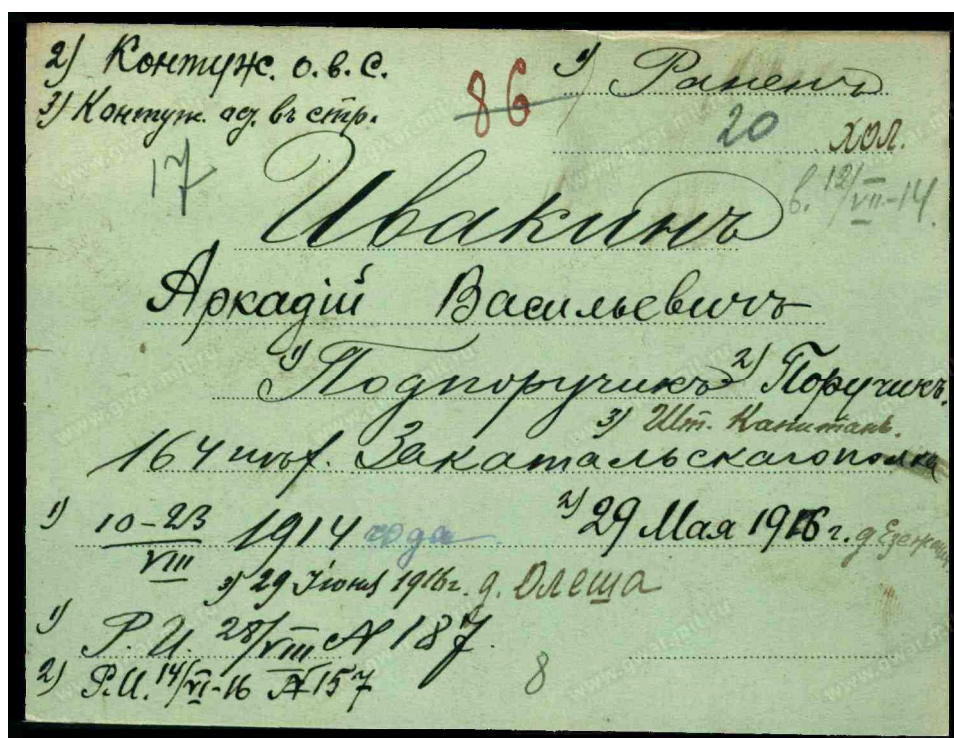 2) Контуж. о. в. С.
1) Раненъ
3) Контуж. ост. въ стр.
86
20 хол.
17
в. 12/VII-14.
Ивакинъ
Аркадій Васильевичъ
1) Подпоручикъ 2) Поручикъ.
3) Шт. Капитанъ.
164 пѣх. Закатальскаго полка
1) 10-23/VIII 1914 года 2) 29 Мая 1916 г.
3) 29 Іюня 1916 г. д. Олеша
1) Р. И. 28/VIII № 187
2) Р. И. 14/VI-16 № 157
8